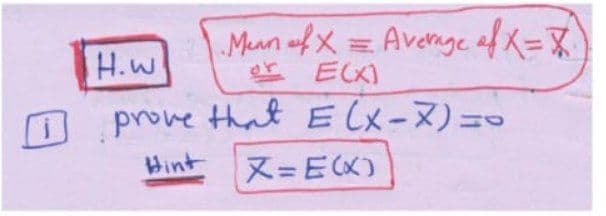 Mean of X ≡ Average of X = X̄
H.W
or E(X)
i prove that E(X-X̄)=0
Hint X̄=E(X)